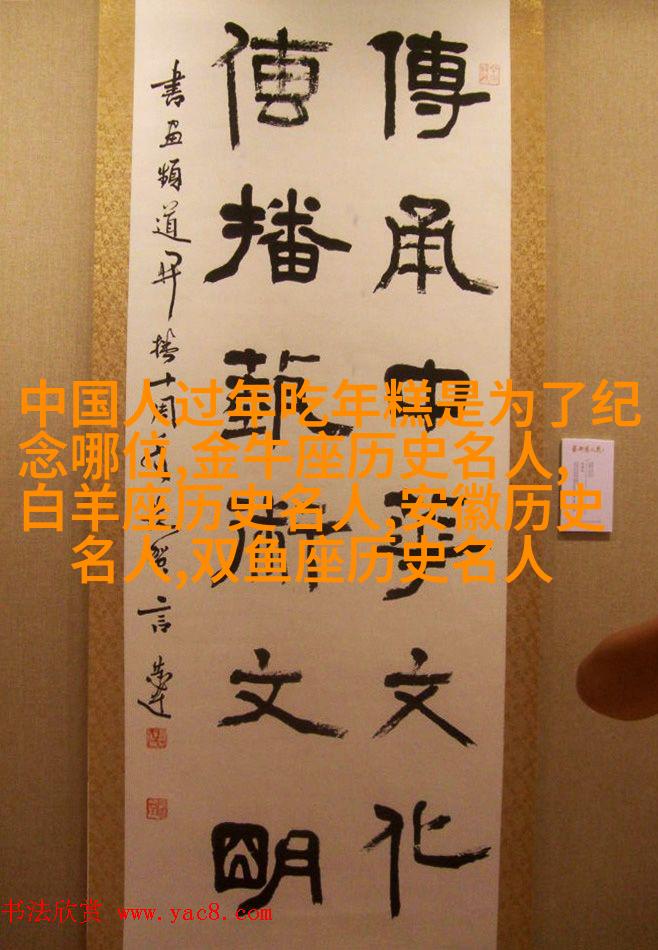 傳承中華文化
傳播藝術文明
書画頻道开播十周年
言
中国人过年吃年糕是为了纪
念哪位,金牛座历史名人,
白羊座历史名人,安徽历史
名人,双鱼座历史名人
书法欣赏 www.yac8.com